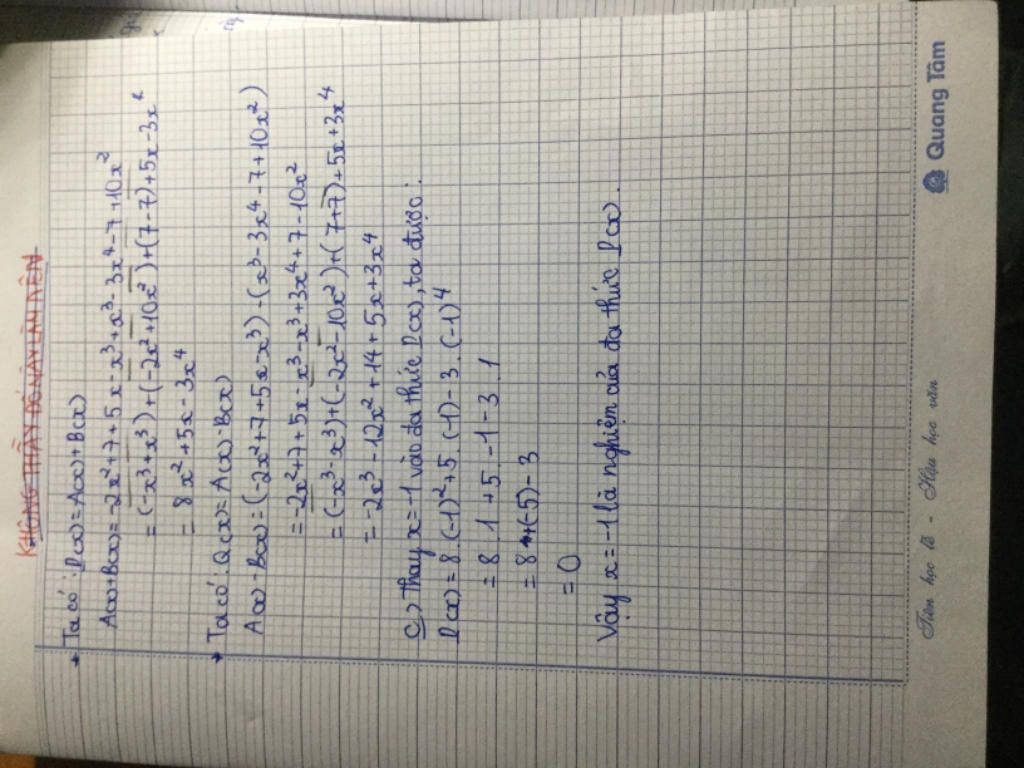 KHÔNG THẦY ĐỐ MÀY LÀM NÊN
Ta có: P(x) = A(x) + B(x)
A(x)+B(x) = -2x²+7+5x-x³+x³-3x⁴-7+10x²
= (-x³+x³)+(-2x²+10x²)+(7-7)+5x-3x⁴
= 8x²+5x-3x⁴
Ta có: Q(x) = A(x)-B(x)
A(x)-B(x) = (-2x²+7+5x-x³)-(x³-3x⁴-7+10x²)
= -2x²+7+5x-x³-x³+3x⁴+7-10x²
= (-x³-x³)+(-2x²-10x²)+(7+7)+5x+3x⁴
= -2x³-12x²+14+5x+3x⁴
c) Thay x=-1 vào đa thức P(x), ta được:
P(x) = 8.(-1)²+5.(-1)-3.(-1)⁴
= 8.1+5.-1-3.1
= 8+(-5)-3
= 0
Vậy x=-1 là nghiệm của đa thức P(x).
Tiên học lễ - Hậu học văn
Quang Tâm